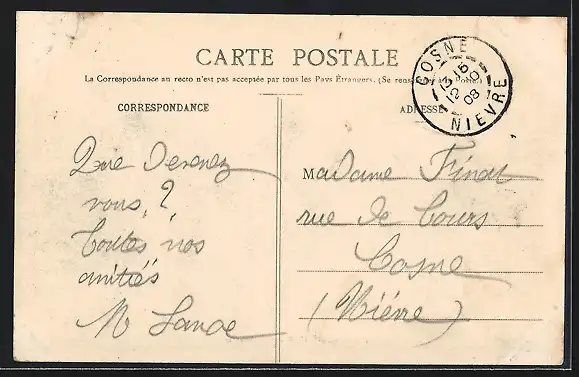 CARTE POSTALE
La Correspondance au recto n'est pas acceptée par tous les Pays Étrangers. (Se rens
CORRESPONDANCE
ADRESSE
COSNE
NIEVRE
08
Que devenez
vous ?
Toutes nos
amitiés
Madame Finat
rue de Cours
Cosne
(Nièvre)